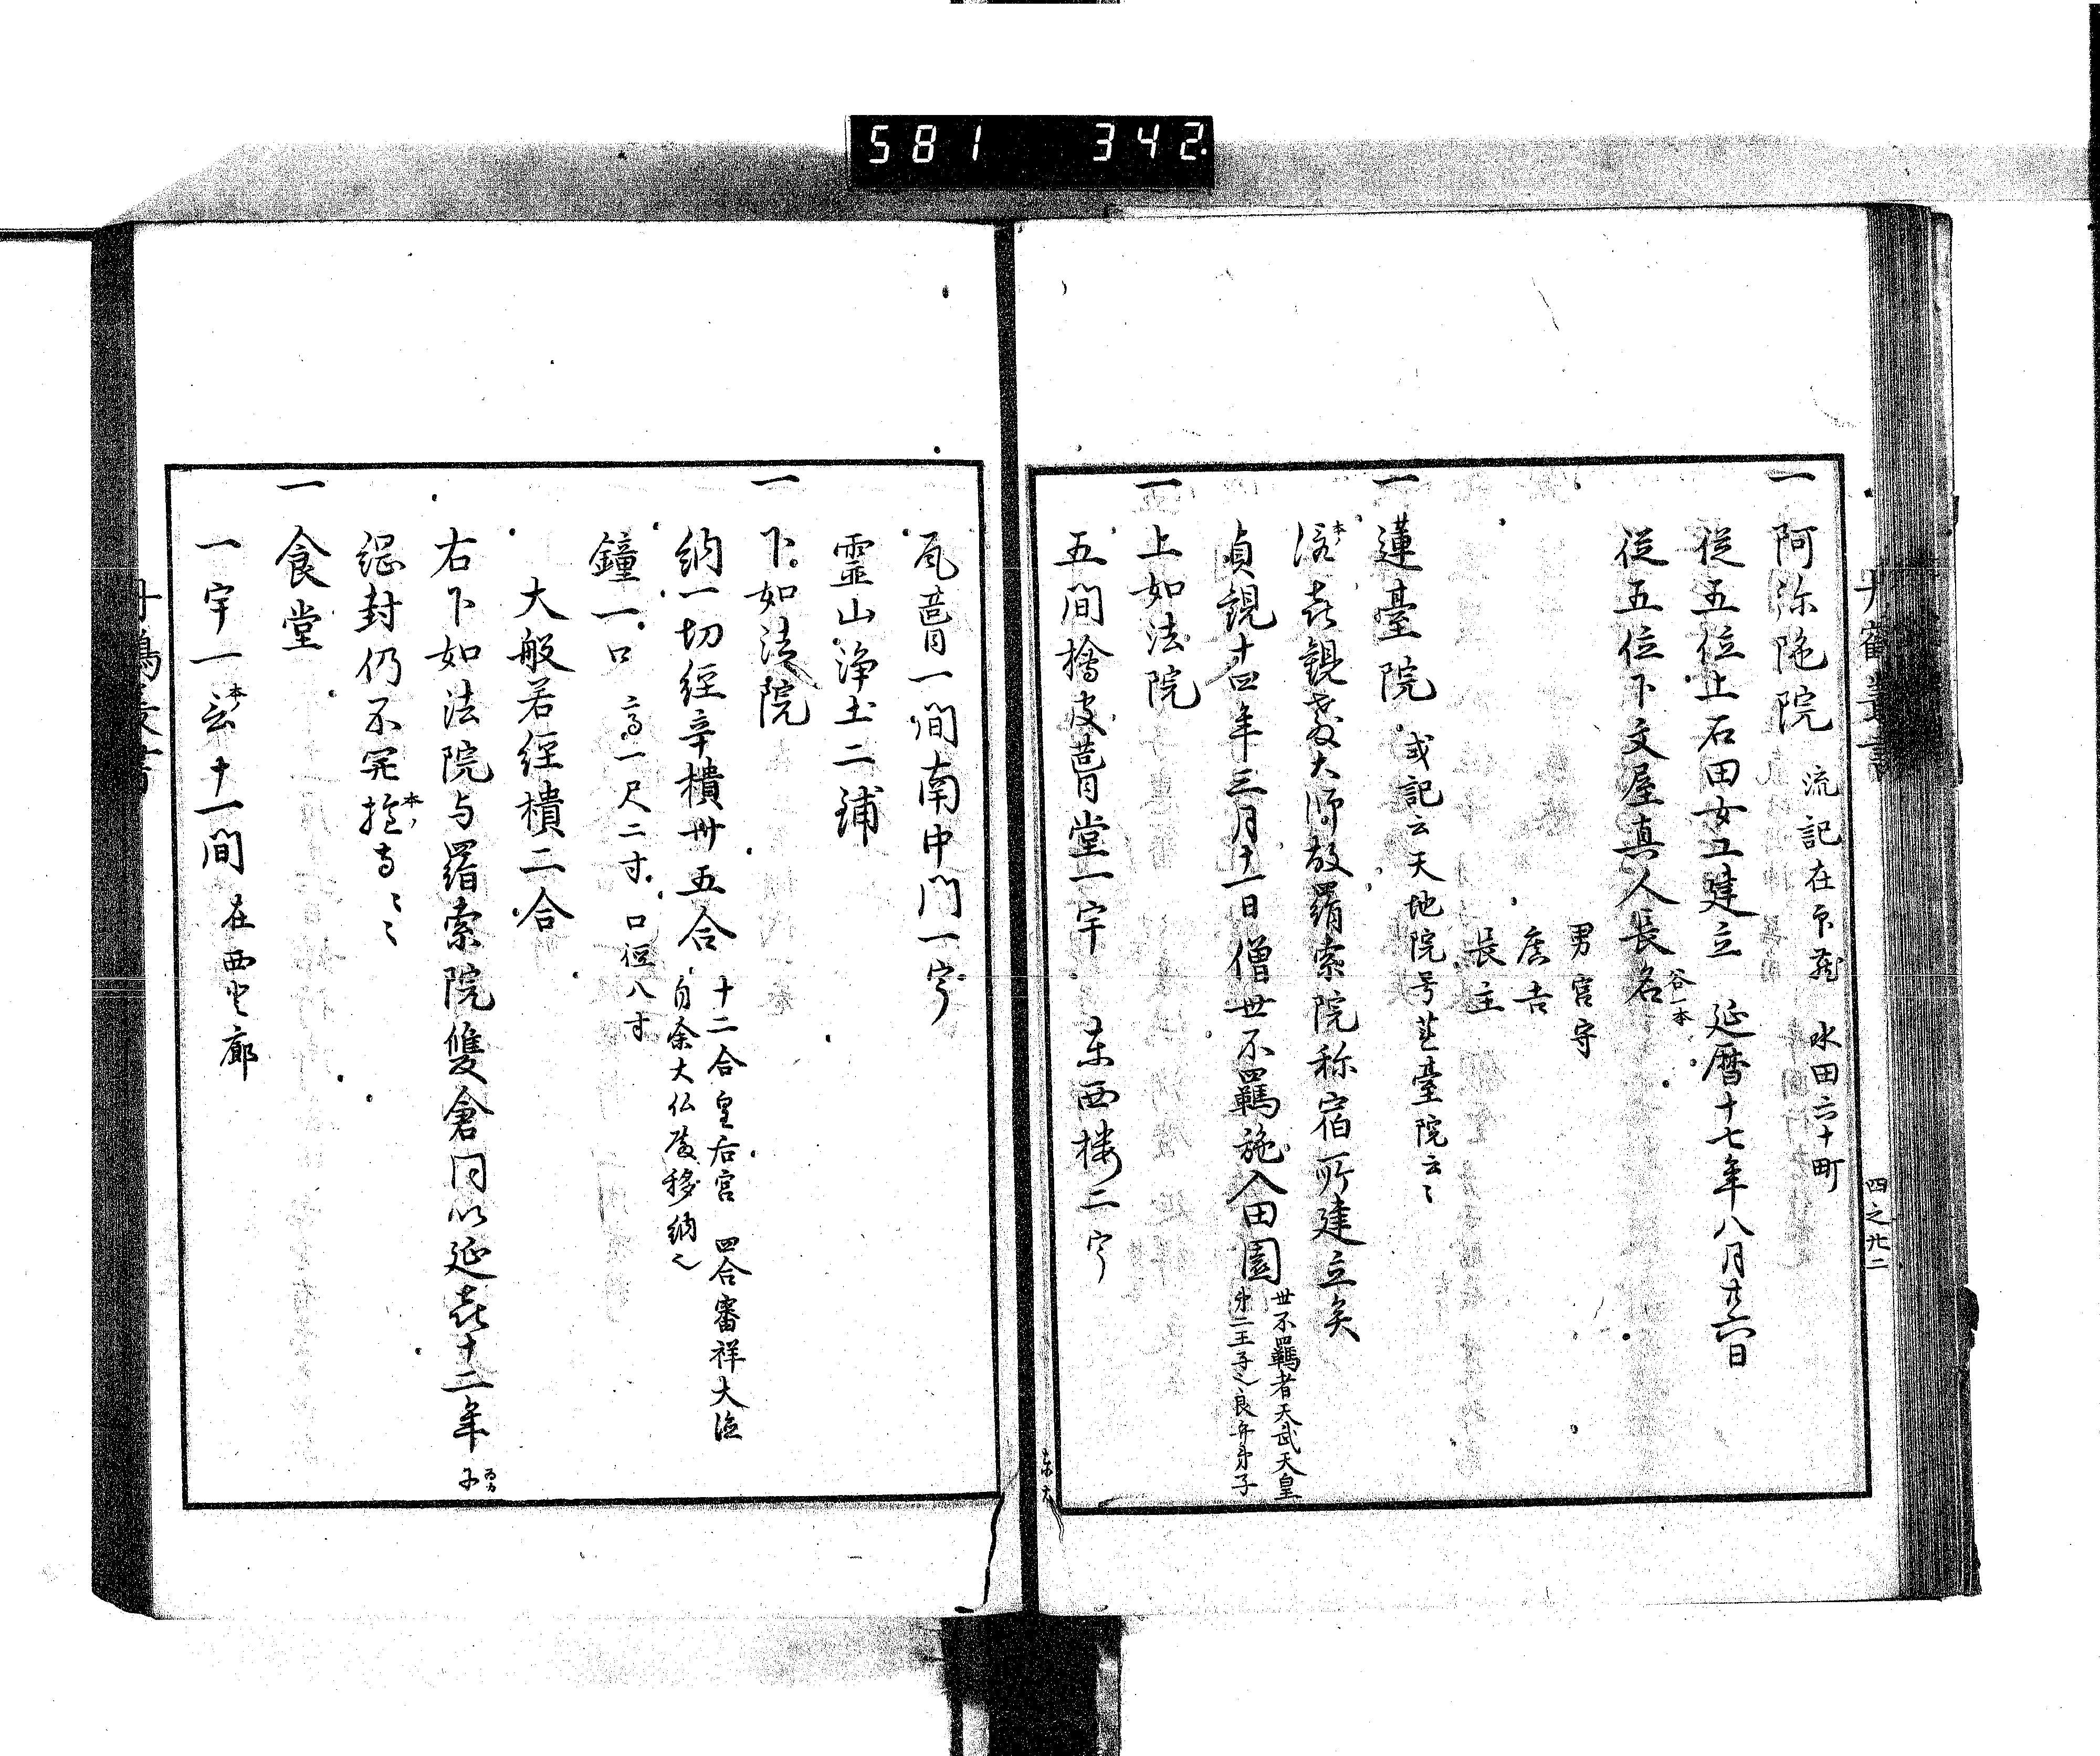 581 342
丹鶴叢書
四之廿二
一 阿弥陀院 流記在印蔵 水田六十町
従五位上石田女王建立 延暦十七年八月廿六日
従五位下文屋真人長名 谷一本
男宮守
長主
一 蓮臺院 或記云天地院号蓮臺院云々
本ノ
喜観大師故羂索院称宿所建立矣
貞観十四年三月十一日僧世不羈施入田園 世不羈者天武天皇
第二王子也良弁弟子
一 上如法院
五間檜皮葺堂一宇 東西楼二宇
瓦葺一間南中門一宇
霊山浄土二鋪
一 下如法院
納一切経辛樻卅五合 十二合皇后宮 四合審祥大徳
自余大仏殿移納也
鐘一口 高一尺二寸 口径八寸
大般若経樻二合
右下如法院与羂索院雙倉同以延喜十二年
綱封仍不開 本ノ
一 食堂
一宇 本ノ 十一間 在西 廊
丹鶴叢書